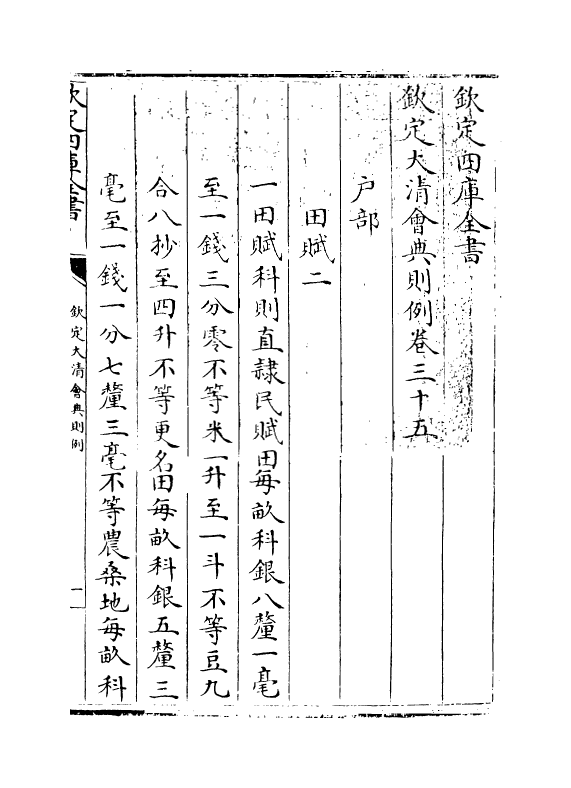 欽定四庫全書
欽定大清會典則例卷三十五
户部
田賦二
一田賦科則直隸民賦田每畝科銀八釐一毫
至一錢三分零不等米一升至一斗不等豆九
合八抄至四升不等更名田每畝科銀五釐三
毫至一錢一分七釐三毫不等農桑地每畝科
欽定四庫全書
欽定大清會典則例
一